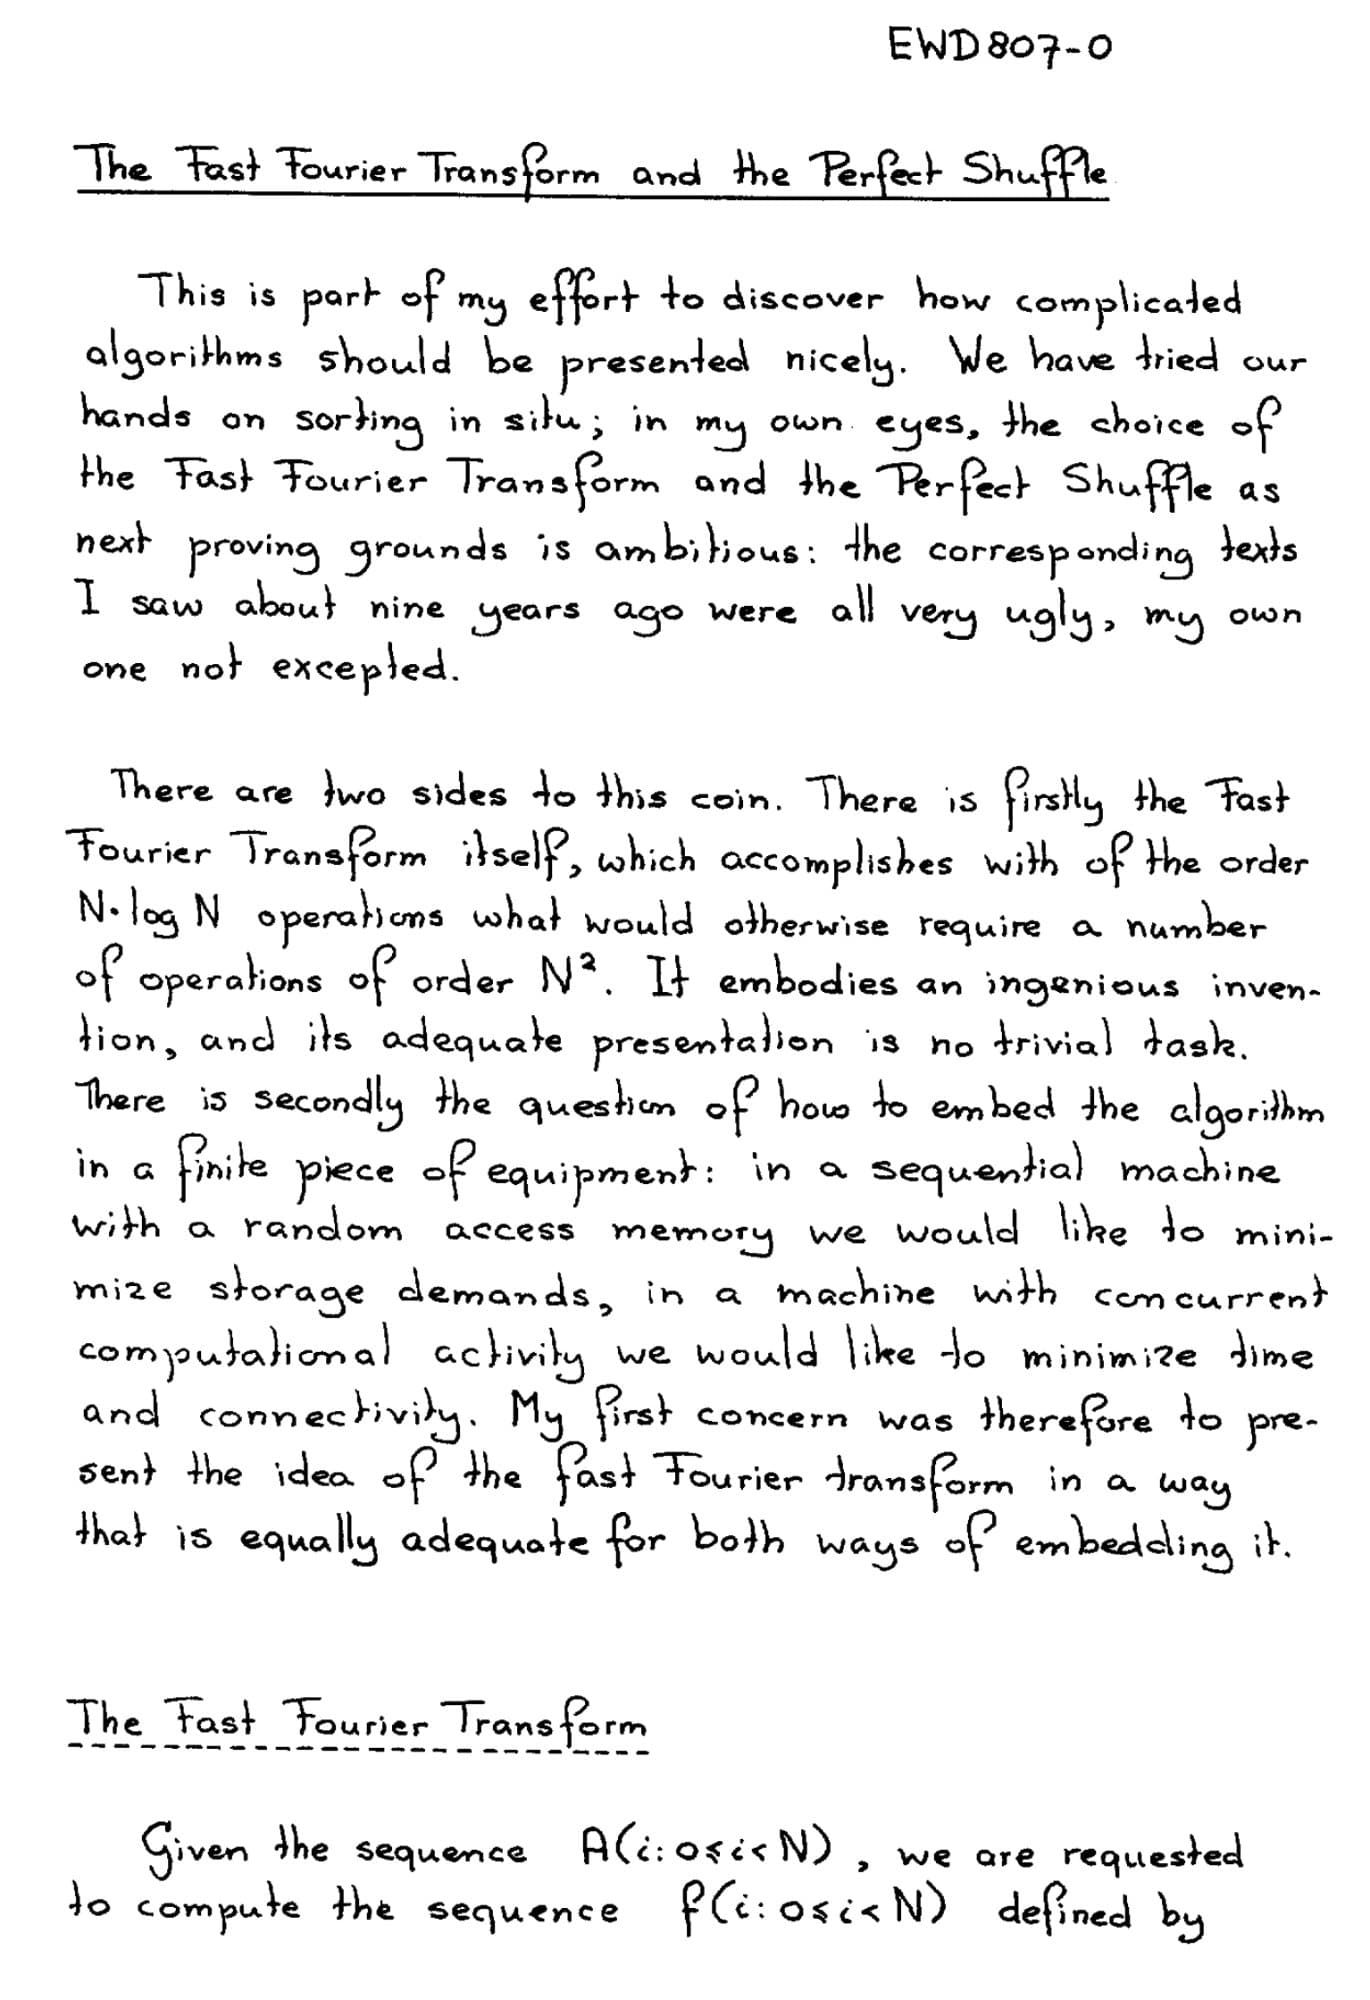 EWD807-0
The Fast Fourier Transform and the Perfect Shuffle
This is part of my effort to discover how complicated
algorithms should be presented nicely. We have tried our
hands on sorting in situ; in my own eyes, the choice of
the Fast Fourier Transform and the Perfect Shuffle as
next proving grounds is ambitious: the corresponding texts
I saw about nine years ago were all very ugly, my own
one not excepted.
There are two sides to this coin. There is firstly the Fast
Fourier Transform itself, which accomplishes with of the order
N·log N operations what would otherwise require a number
of operations of order N². It embodies an ingenious inven-
tion, and its adequate presentation is no trivial task.
There is secondly the question of how to embed the algorithm
in a finite piece of equipment: in a sequential machine
with a random access memory we would like to mini-
mize storage demands, in a machine with concurrent
computational activity we would like to minimize time
and connectivity. My first concern was therefore to pre-
sent the idea of the fast Fourier transform in a way
that is equally adequate for both ways of embedding it.
The Fast Fourier Transform
Given the sequence A(i: 0≤i<N), we are requested
to compute the sequence f(i: 0≤i<N) defined by